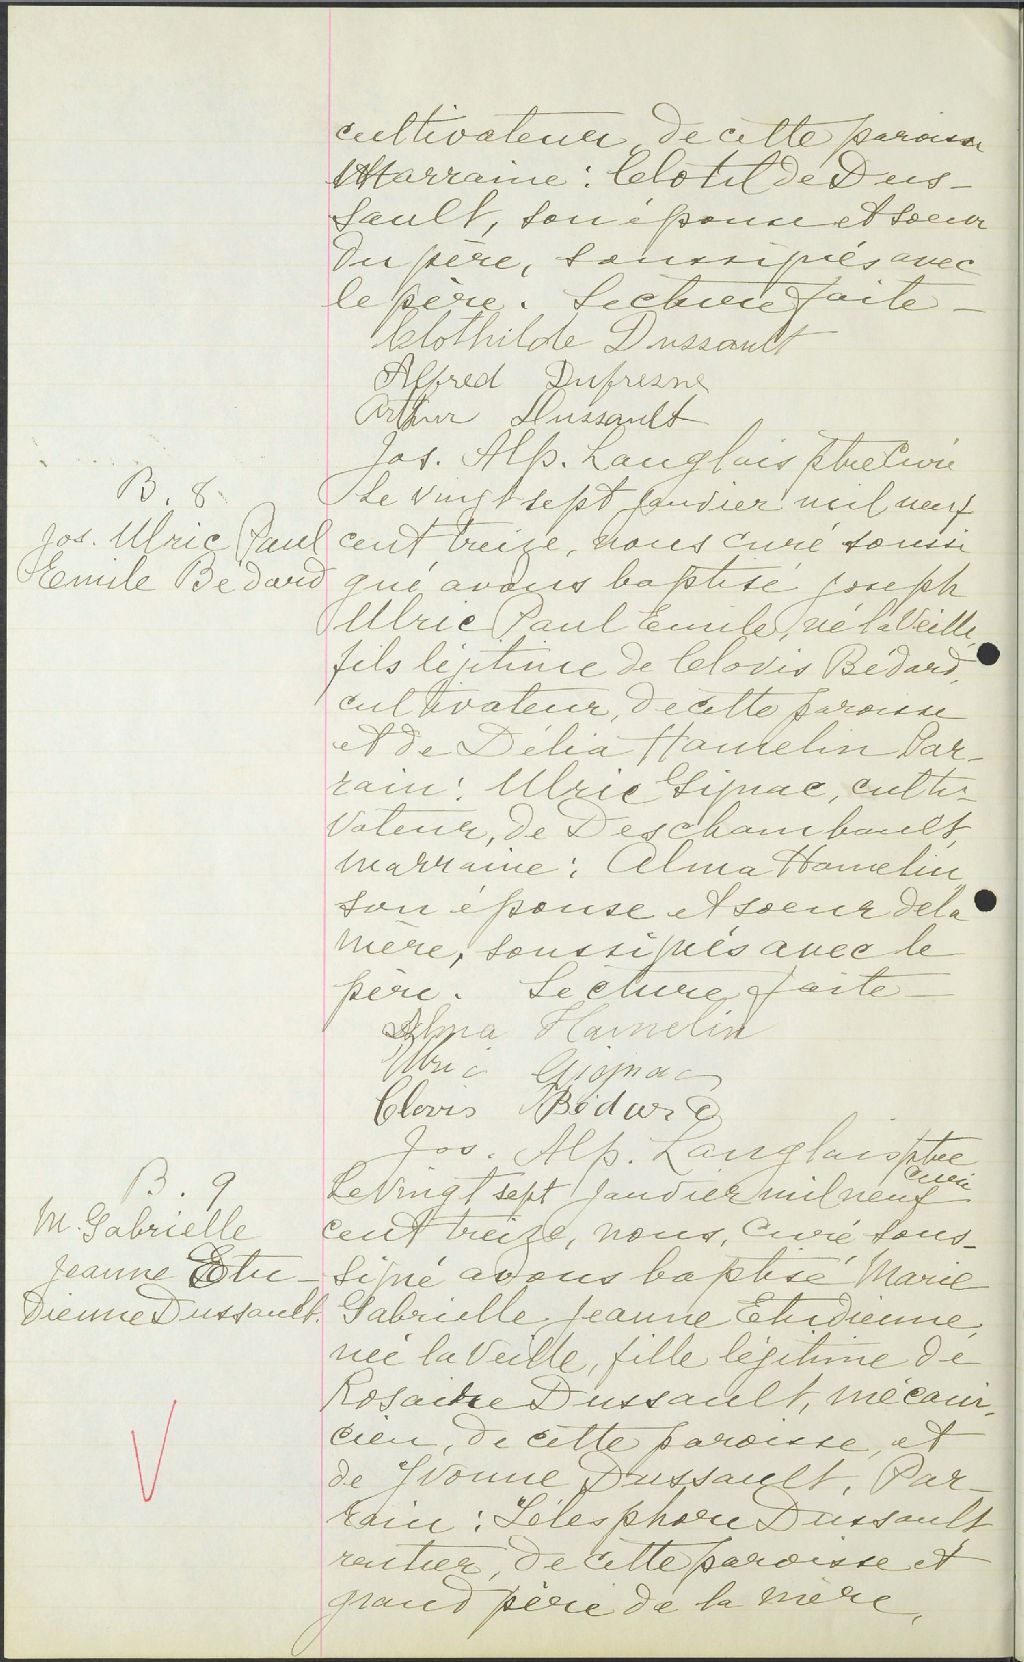 cultivateur, de cette paroisse
Marraine : Clotilde Dus-
sault, son épouse et soeur
du père, soussignés avec
le père. Lecture faite —
Clothilde Dussault
Alfred Dufresne
Arthur Dussault
Jos. Alp. Langlais ptre Curé
B. 8
Jos. Ulric Paul
Emile Bedard
Le vingt sept janvier mil neuf
cent treize, nous curé soussi
gné avons baptisé Joseph
Ulric Paul Emile, né la veille,
fils légitime de Clovis Bédard,
cultivateur, de cette paroisse
et de Délia Hamelin Par-
rain : Ulric Gignac, culti-
vateur, de Deschambault,
marraine : Alma Hamelin,
son épouse et soeur de la
mère, soussignés avec le
père. Lecture faite —
Alma Hamelin
Ulric Gignac
Clovis Bédard
Jos. Alp. Langlais ptre
curé
B. 9
M. Gabrielle
Jeanne Etu-
dienne Dussault.
Le vingt sept janvier mil neuf
cent treize, nous, curé sous-
signé avons baptisé Marie
Gabrielle Jeanne Etudienne,
née la veille, fille légitime de
Rosaire Dussault, mécani-
cien, de cette paroisse, et
de Yvonne Dussault. Par-
rain : Télesphore Dussault,
rentier, de cette paroisse et
grand père de la mère,